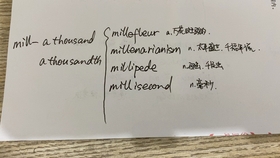 millefleur n.万花图案的.
mill- a thousand
millenarianism n.太平盛世、千禧年说.
a thousandth
millipede n.马陆、千足虫
millisecond n.毫秒.